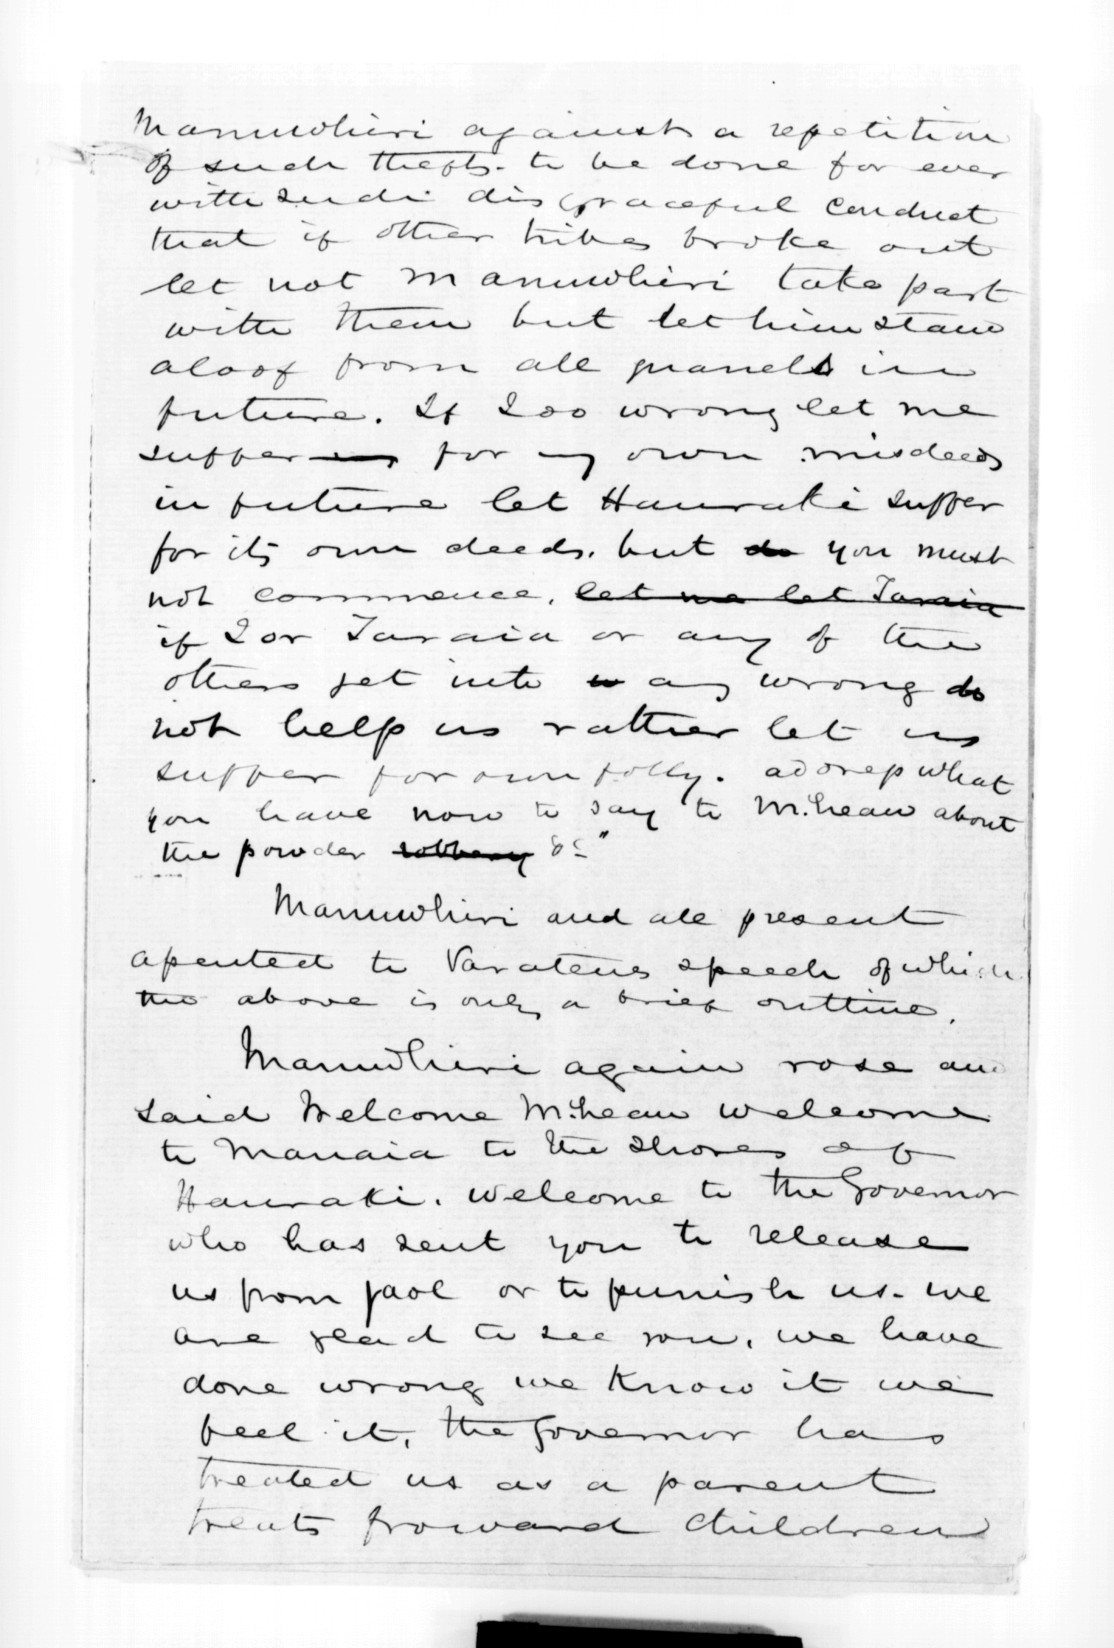 Manuwhiri against a repetition
of such thefts. to be done for ever
with such disgraceful conduct
that if other tribes broke out
let not Manuwhiri take part
with them but let him stand
aloof from all quarrels in
future. If I do wrong let me
suffer my for my own misdeeds
in future let Hauraki suffer
for its own deeds. but do you must
not commence. let me let Taraia
if I or Taraia or any of the
others get into any wrong do
not help us rather let us
suffer for own folly. address what
you have now to say to McLean about
the powder robbery &c"
Manuwhiri and all present
assented to Taratens speech of which
the above is only a brief outline.
Manuwhiri again rose and
said Welcome McLean welcome
to Manaia to the shores of
Hauraki. welcome to the Governor
who has sent you to release
us from gaol or to punish us. we
are glad to see you. we have
done wrong we know it we
feel it. the Governor has
treated us as a parent
treats froward children